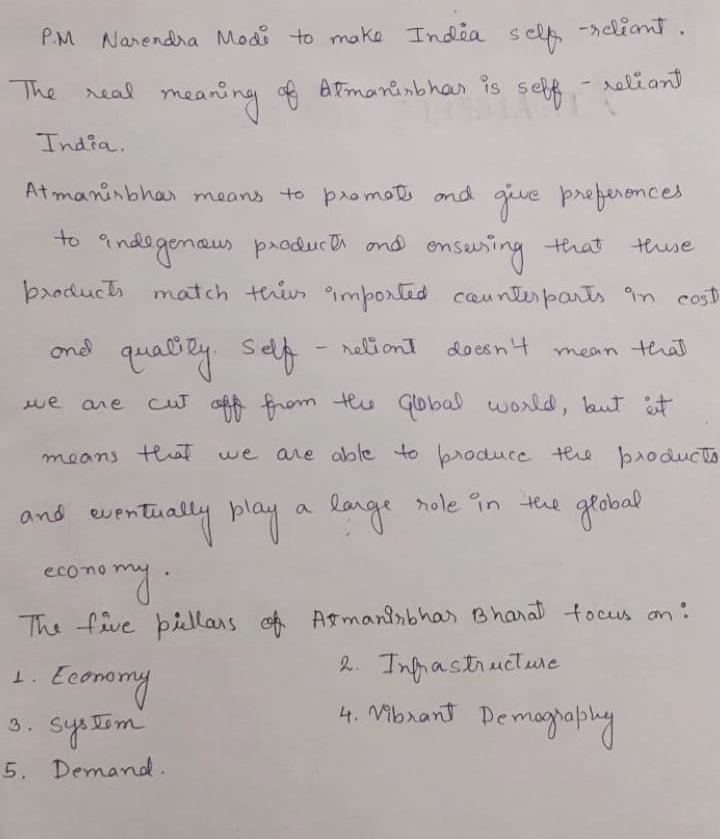 P.M Narendra Modi to make India self -reliant.
The real meaning of Atmanirbhar is self - reliant
India.
Atmanirbhar means to promote and give preferences
to indegenous products and ensuring that these
products match their imported counterparts in cost
and quality. Self - reliant doesn't mean that
we are cut off from the global world, but it
means that we are able to produce the products
and eventually play a large role in the global
economy.
The five pillars of Atmanirbhar Bharat focus on:
1. Economy 2. Infrastructure
3. System 4. Vibrant Demography
5. Demand.